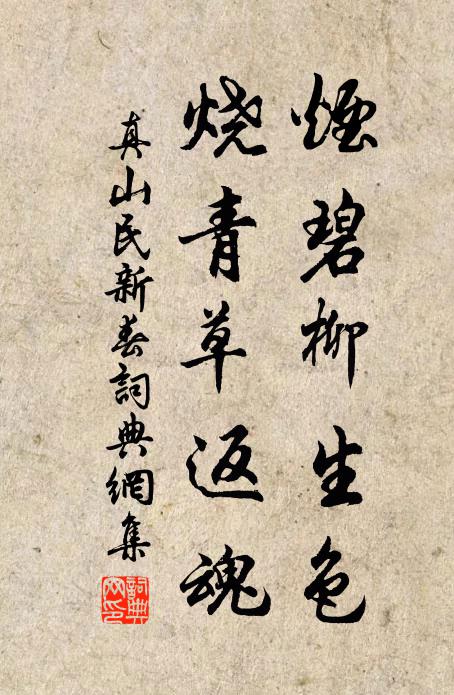 煙碧柳生色
烧青草返魂
真山民新春詞典網集
詞典